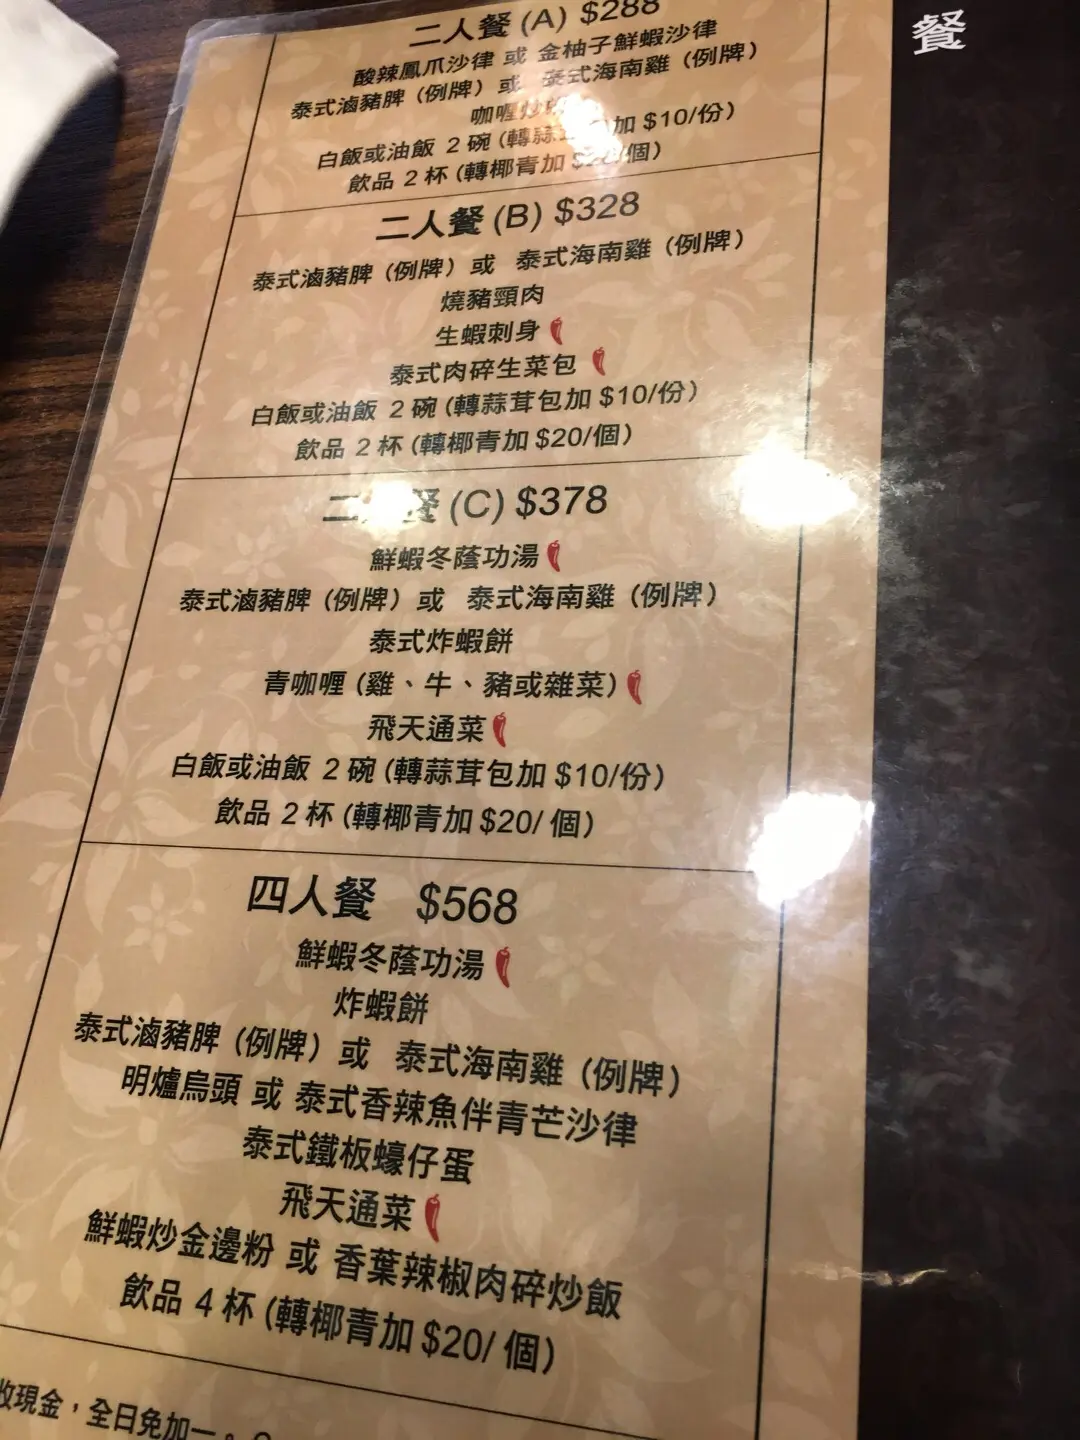 餐
二人餐 (A) $288
酸辣鳳爪沙律 或 金柚子鮮蝦沙律
泰式滷豬脾（例牌）或 泰式海南雞（例牌）
咖喱炒
白飯或油飯 2 碗 (轉蒜 加 $10/份）
飲品 2 杯 (轉椰青加 $20/個）
二人餐 (B) $328
泰式滷豬脾（例牌）或 泰式海南雞（例牌）
燒豬頸肉
生蝦刺身
泰式肉碎生菜包
白飯或油飯 2 碗 (轉蒜茸包加 $10/份）
飲品 2 杯 (轉椰青加 $20/個）
二 餐 (C) $378
鮮蝦冬蔭功湯
泰式滷豬脾（例牌）或 泰式海南雞（例牌）
泰式炸蝦餅
青咖喱 (雞、牛、豬或雜菜）
飛天通菜
白飯或油飯 2 碗 (轉蒜茸包加 $10/份）
飲品 2 杯 (轉椰青加 $20/ 個）
四人餐 $568
鮮蝦冬蔭功湯
炸蝦餅
泰式滷豬脾（例牌）或 泰式海南雞（例牌）
明爐烏頭 或 泰式香辣魚伴青芒沙律
泰式鐵板蠔仔蛋
飛天通菜
鮮蝦炒金邊粉 或 香葉辣椒肉碎炒飯
飲品 4 杯 (轉椰青加 $20/ 個）
收現金，全日免加一。